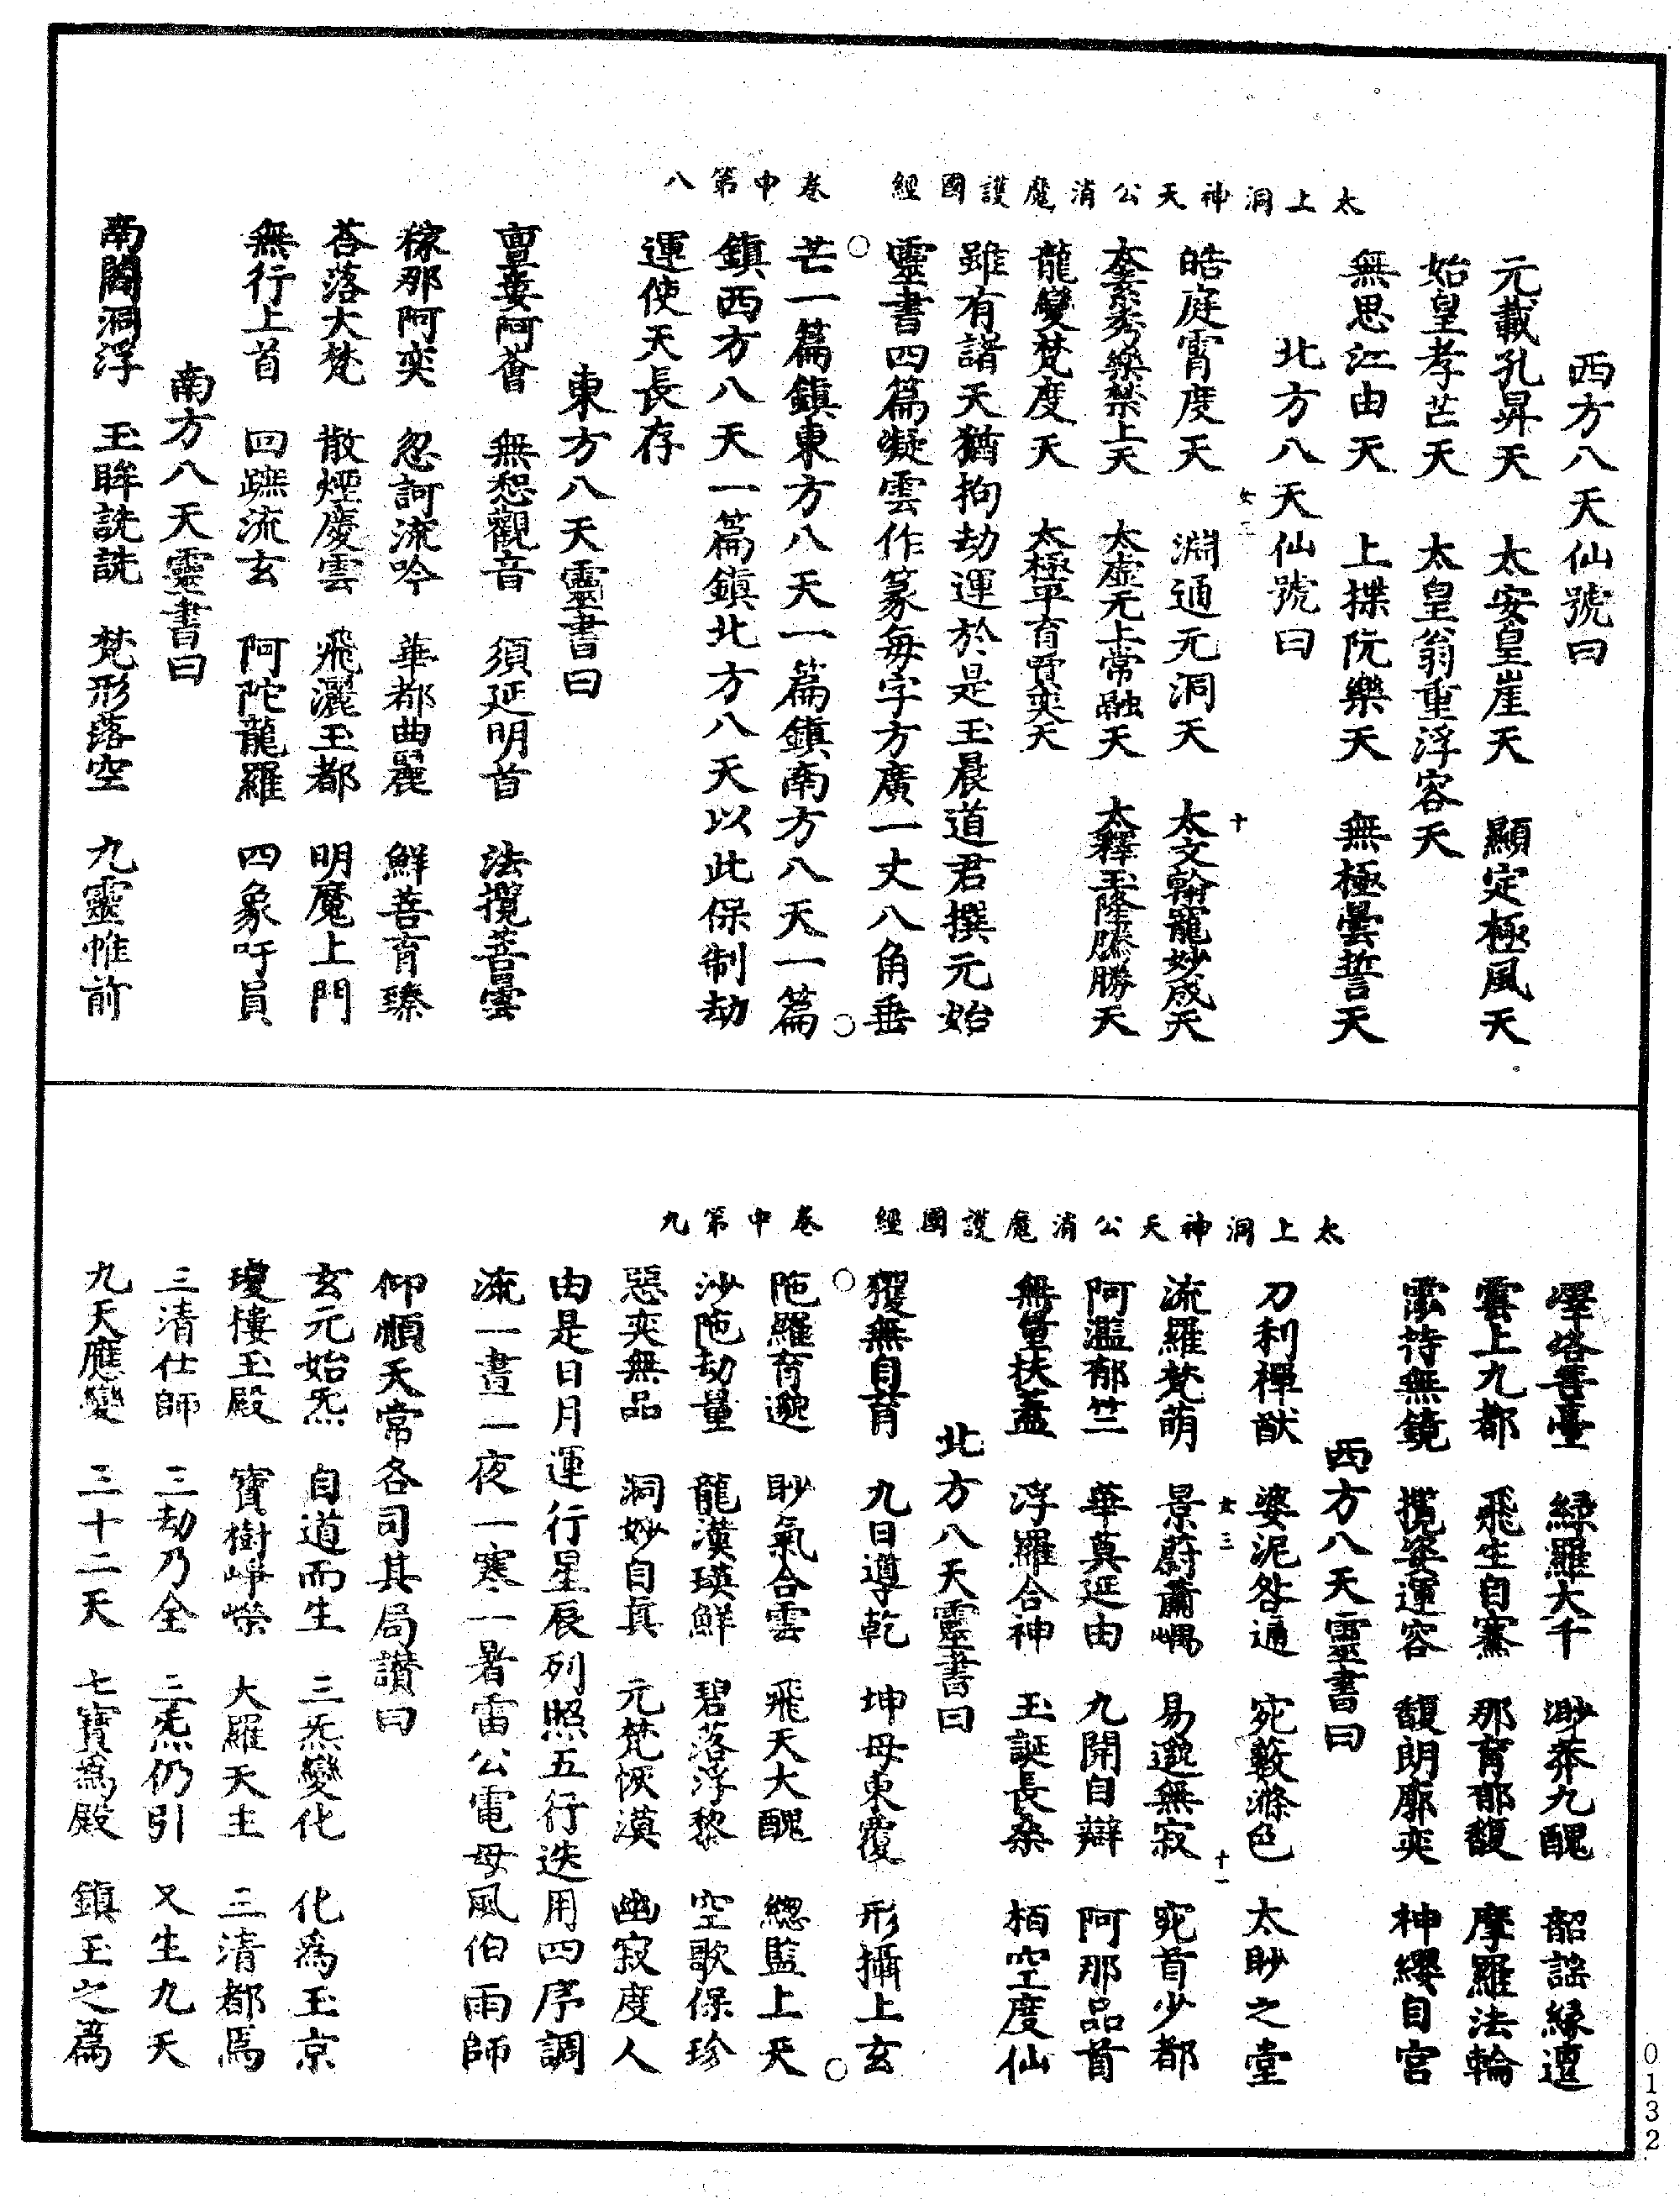 太上洞神天公消魔護國經　卷中第八
西方八天仙號曰
元載孔昇天　太安皇崖天　顯定極風天
始皇孝芒天　太皇翁重浮容天
無思江由天　上揲阮樂天　無極曇誓天
北方八天仙號曰
皓庭霄度天　淵通元洞天　太文翰寵妙成天
太素秀樂禁上天　太虛无上常融天　太釋玉隆騰勝天
龍變梵度天　太極平育賈奕天
雖有諸天猶拘劫運於是玉晨道君撰元始
靈書四篇凝雲作篆每字方廣一丈八角垂
芒一篇鎮東方八天一篇鎮南方八天一篇
鎮西方八天一篇鎮北方八天以此保制劫
運使天長存
東方八天靈書曰
亶婁阿薈　無惒觀音　須延明首　法攬菩曇
稼那阿奕　忽訶流吟　華都曲麗　鮮菩育臻
荅落大梵　散煙慶雲　飛灑玉都　明魔上門
無行上首　回蹠流玄　阿陀龍羅　四象吁員
南方八天靈書曰
南閻洞浮　玉眸詵詵　梵形落空　九靈惟前
女二
十
太上洞神天公消魔護國經　卷中第九
澤洛菩臺　緑羅大千　渺莽九醜　韶謡緣邅
雲上九都　飛生自騫　那育郁馥　摩羅法輪
霐持無鏡　攬姿運容　馥朗廓奕　神纓自宫
西方八天靈書曰
刀利禪猷　婆泥咎通　宛藪滌色　太眇之堂
流羅梵萌　景蔚蕭嵎　易邈無寂　宛首少都
阿濫郁竺　華莫延由　九開自辯　阿那品首
無量扶蓋　浮羅合神　玉誕長桑　栢空度仙
北方八天靈書曰
玃無自育　九日導乾　坤母東覆　形攝上玄
陁羅育邈　眇氣合雲　飛天大醜　緫監上天
沙陁劫量　龍漢瑛鮮　碧落浮黎　空歌保珍
惡奕無品　洞妙自真　元梵恢漠　幽寂度人
由是日月運行星辰列照五行迭用四序調
流一晝一夜一寒一暑雷公電母風伯雨師
仰順天常各司其局讃曰
玄元始炁　自道而生　三炁變化　化為玉京
瓊樓玉殿　寳樹崢嶸　大羅天主　三清都焉
三清仕師　三劫乃全　三炁仍引　又生九天
九天應變　三十二天　七寳為殿　鎮玉之為
女三
十一
0132